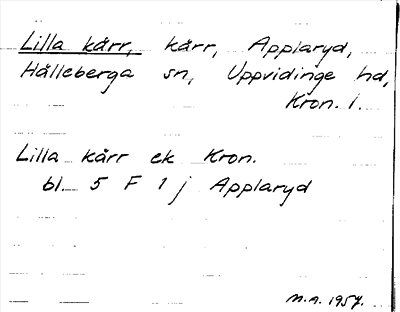 Lilla kärr, kärr, Applaryd,
Hälleberga sn, Uppvidinge hd,
Kron. l.
Lilla kärr ek Kron.
bl. 5 F 1 j Applaryd
M.A. 1957.